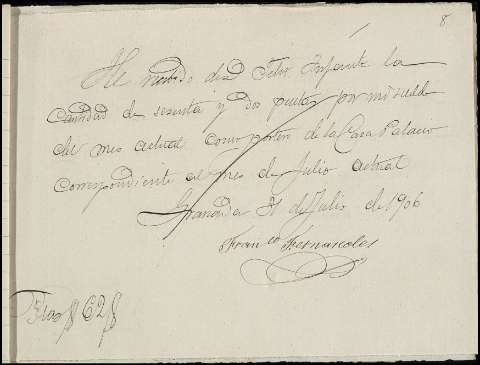 8
He recibido de D. Felix Infante la
Cantidad de sesenta y dos pesetas por mi sueldo
del mes actual como portero de la Casa Palacio
Correspondiente al mes de Julio actual
Granada 31 de Julio de 1906
Franco Fernandez
62